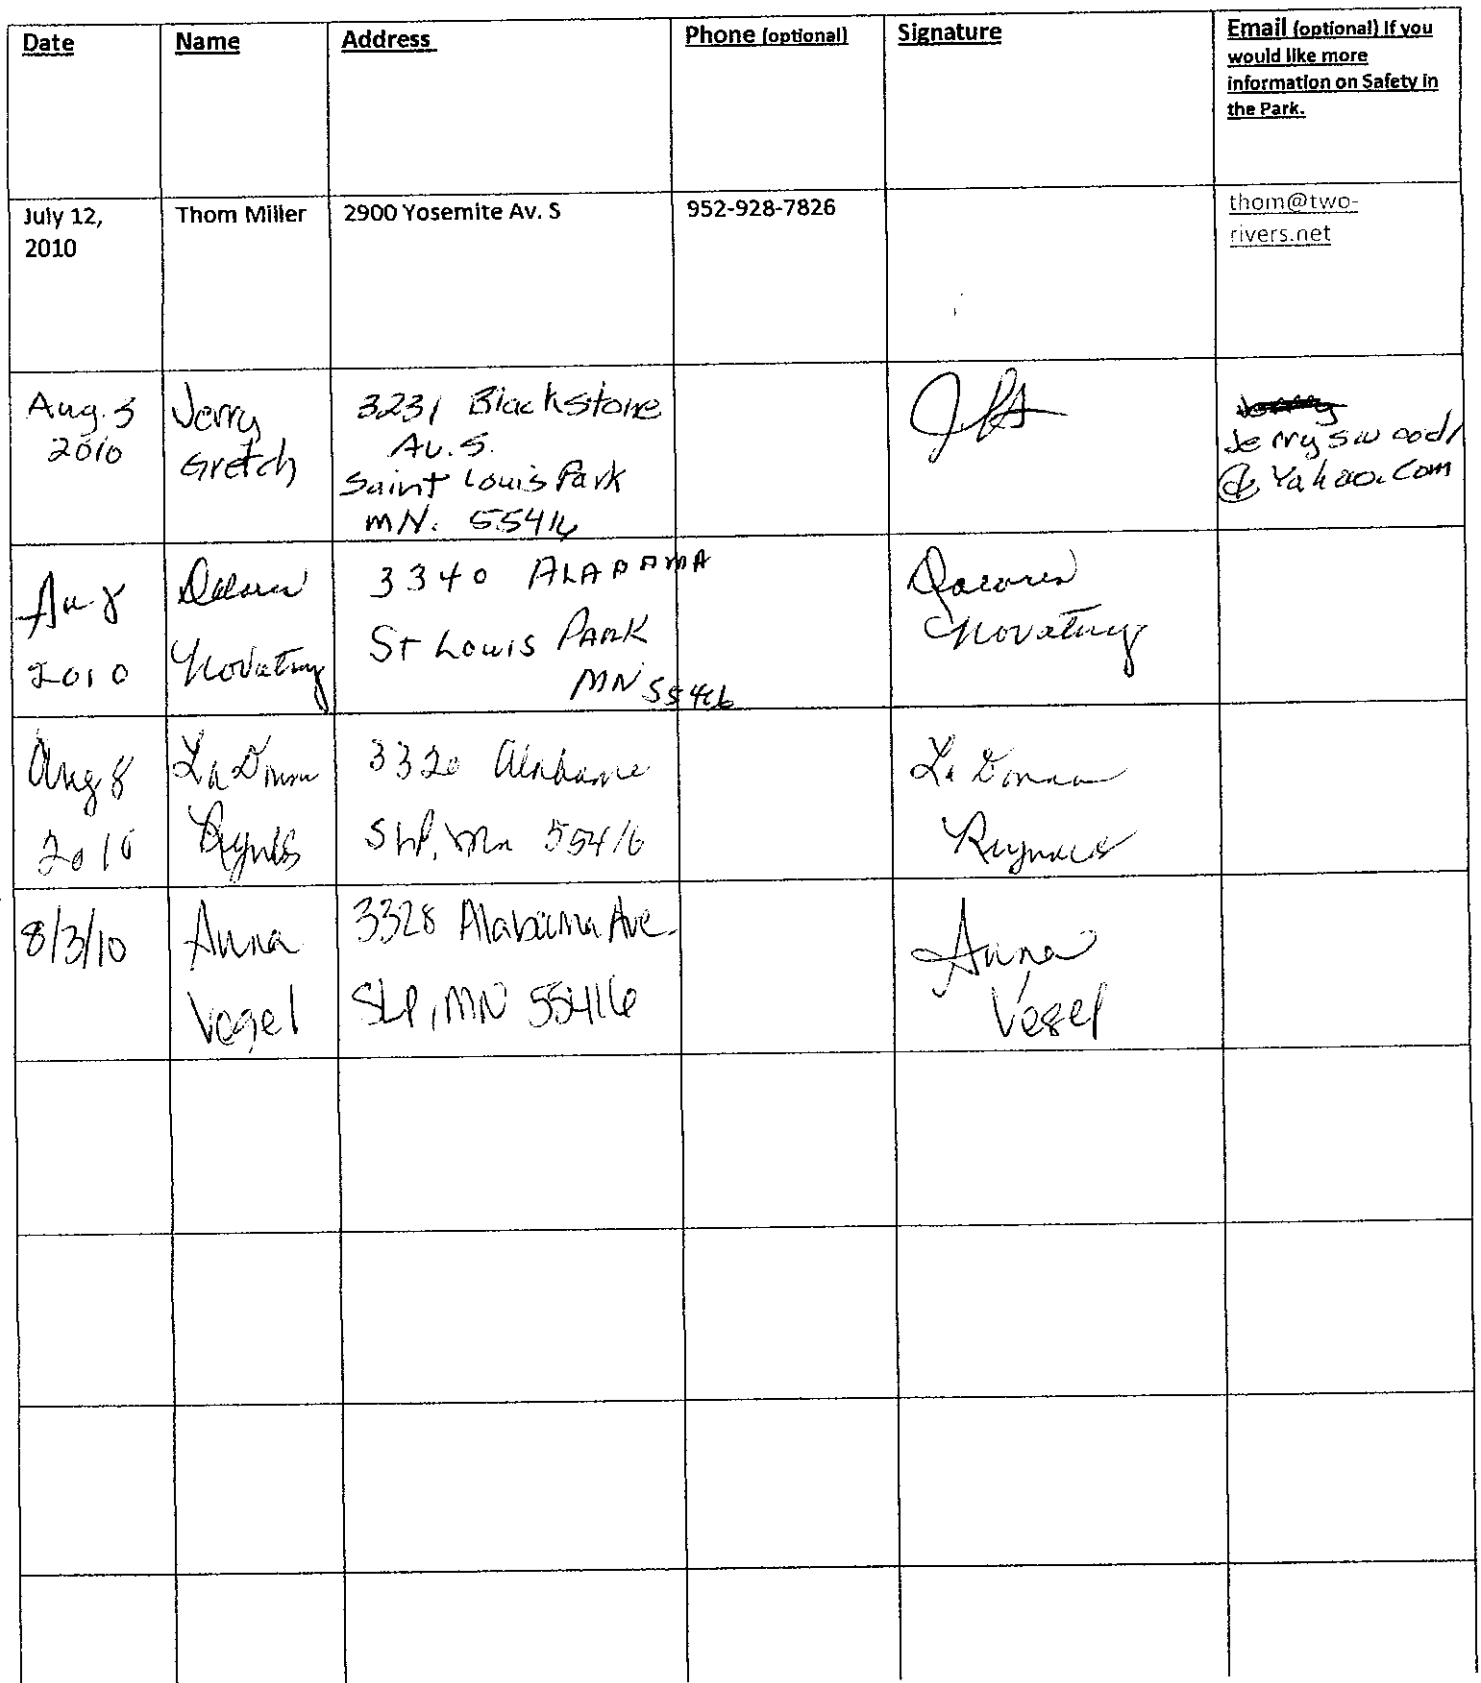 Date
Name
Address
Phone (optional)
Signature
Email (optional) If you
would like more
information on Safety in
the Park.
July 12,
2010
Thom Miller
2900 Yosemite Av. S
952-928-7826
thom@two-
rivers.net
Aug. 3
2010
Jerry
Gretch
3231 Blackstone
Av. S.
Saint Louis Park
MN. 55416
Jerryswood1
@Yahoo.Com
Au 8
2010
Novatny
3340 ALABAMA
ST LOUIS PARK
MN 55416
Novatny
Aug 8
2010
La Donna
3320 Alabama
SLP, Mn 55416
La Donna
8/3/10
Anna
Vogel
3328 Alabama Ave.
SLP, MN 55416
Anna
Vogel